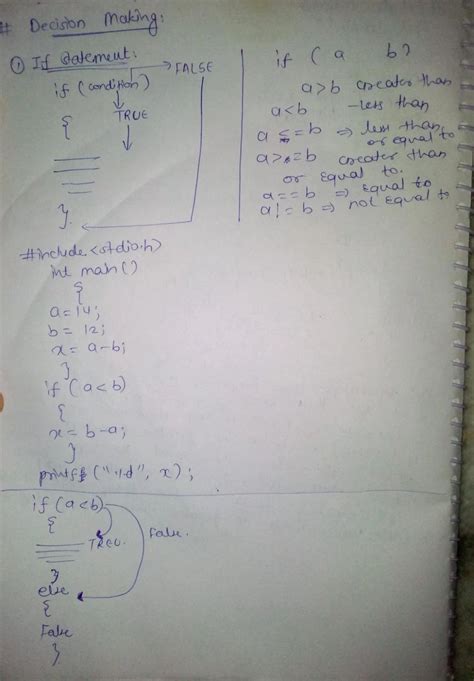 # Decision Making:
① If statement:
if (condition) → FALSE
TRUE
{
}
if ( a b)
a>b Greater than
a<b - less than
a <= b ⇒ less than or equal to
a>=b Greater than
or equal to.
a == b ⇒ equal to
a != b ⇒ not equal to
#include <stdio.h>
int main()
{
a=14;
b= 12;
x= a-b;
}
if (a<b)
{
x= b-a;
}
printf ("%d", x);
if (a<b)
{
TREU. False.
}
else
{
False
}